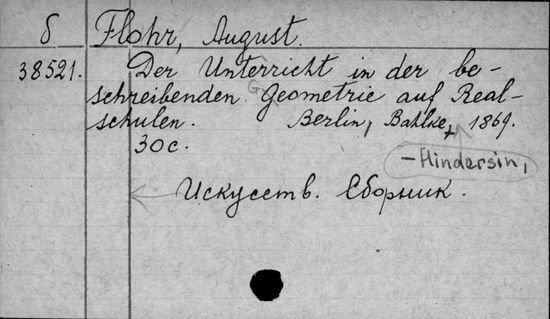 δ Flohr, August.
38521. Der Unterricht in der be-
schreibenden Geometrie auf Real-
schulen. Berlin, Bahlke, 1869.
30 с.
- Hindersin,
Искусств. Сборник.